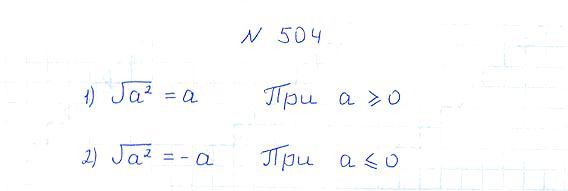 N 504
1) √a² = a При a ⩾ 0
2) √a² = - a При a ⩽ 0